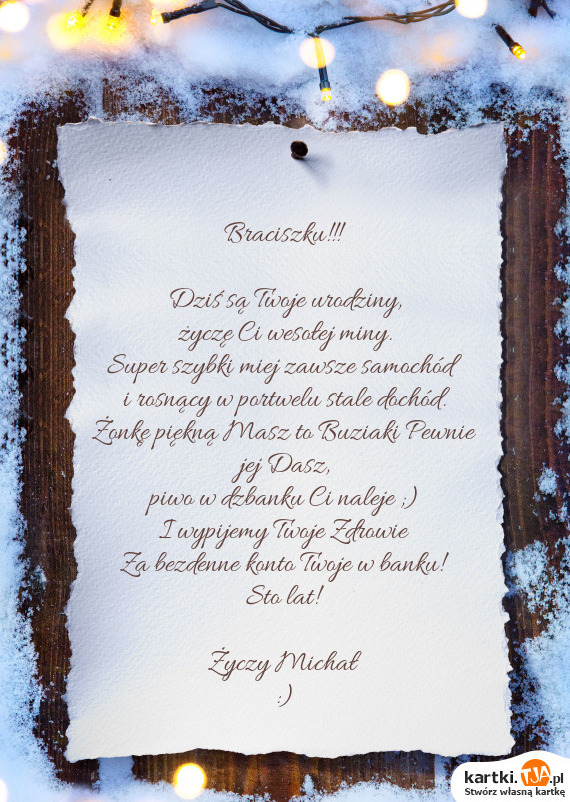 Braciszku!!!
Dziś są Twoje urodziny,
życzę Ci wesołej miny.
Super szybki miej zawsze samochód
i rosnący w portwelu stale dochód.
Żonkę piękną Masz to Buziaki Pewnie
jej Dasz,
piwo w dzbanku Ci naleje ;)
I wypijemy Twoje Zdrowie
Za bezdenne konto Twoje w banku!
Sto lat!
Życzy Michał
:)
kartki.TJA.pl
Stwórz własną kartkę